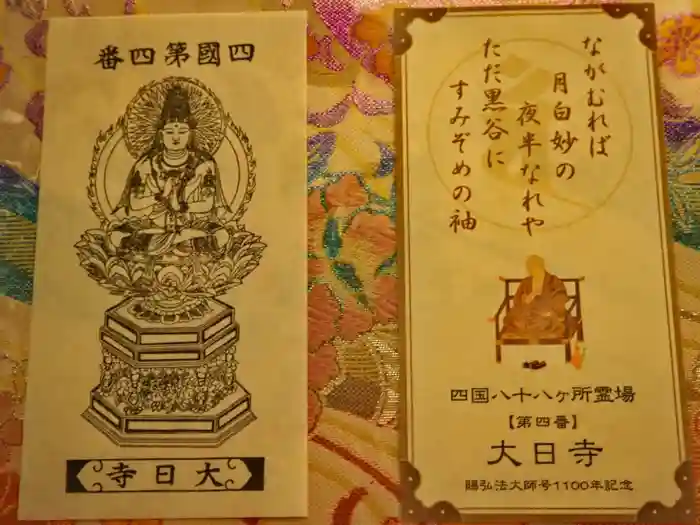 四國第四番
大日寺
ながむれば
月白妙の
夜半なれや
ただ黒谷に
すみぞめの袖
四国八十八ヶ所霊場
【第四番】
大日寺
賜弘法大師号1100年記念